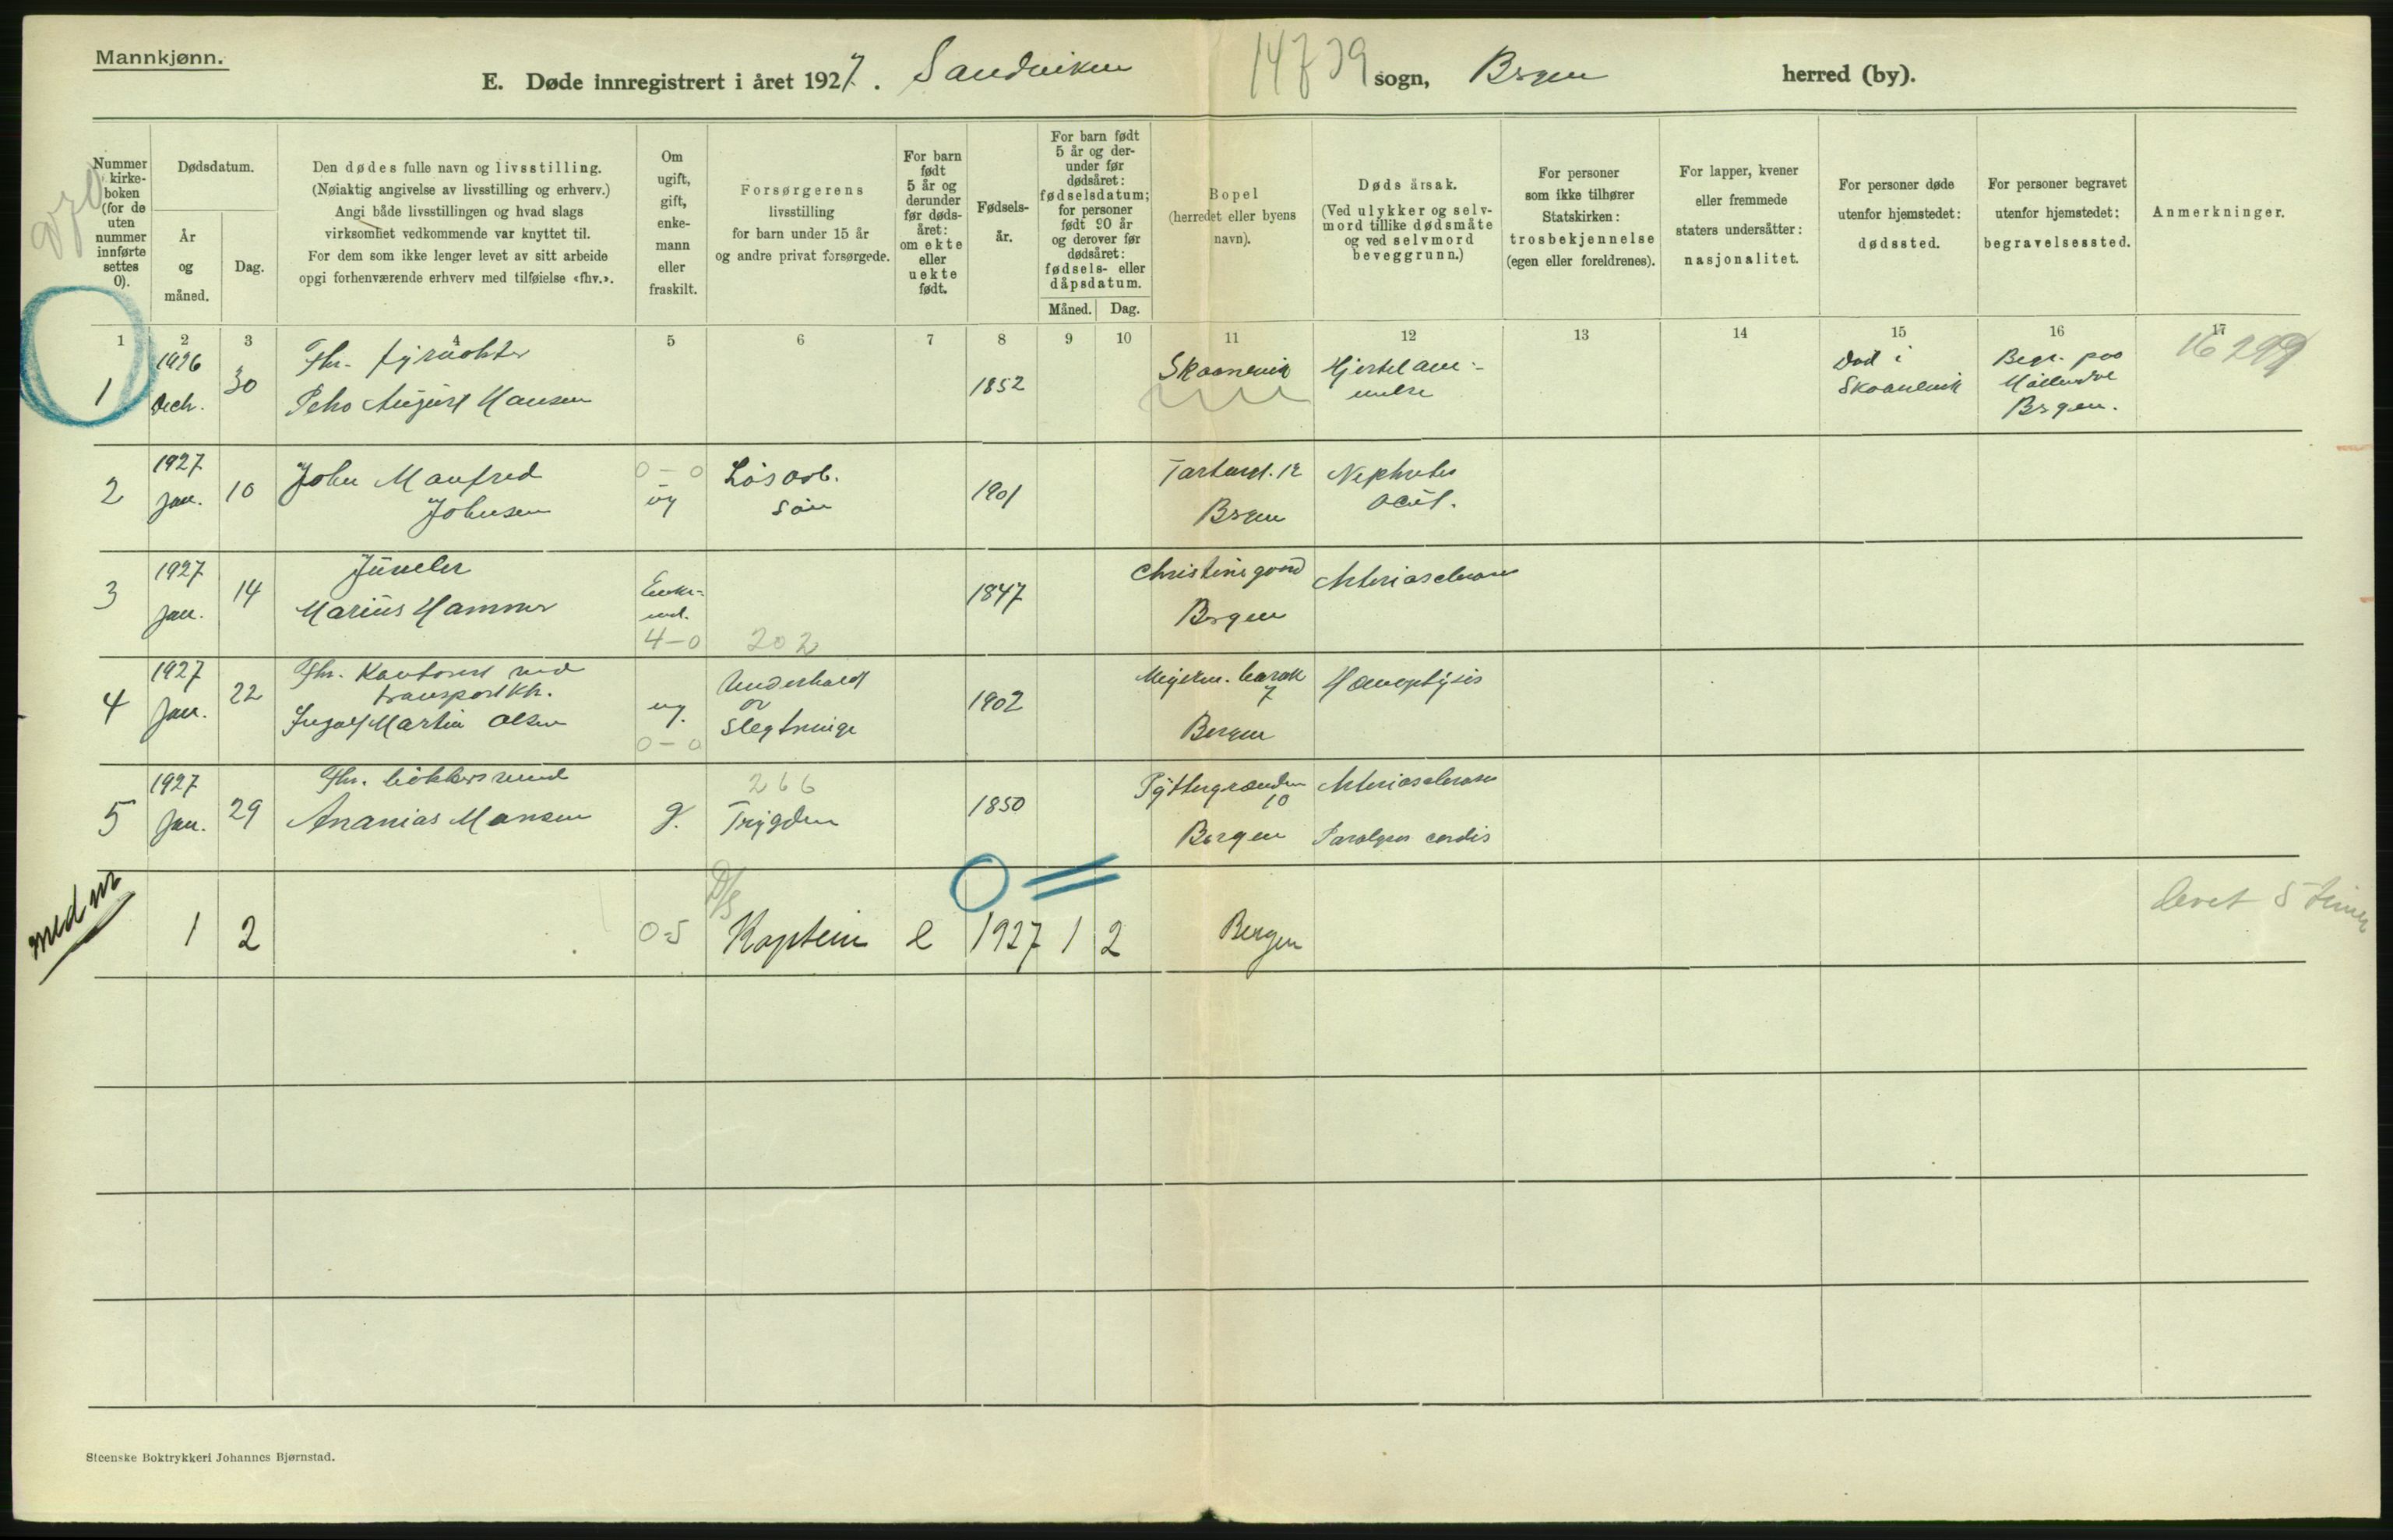 Mannkjønn.
E. Døde innregistrert i året 1927. Sandviken 14739 sogn, Bergen herred (by).
Nummer i kirkeboken (for de uten nummer innførte settes 0).
Dødsdatum.
År og måned.
Dag.
Den dødes fulle navn og livsstilling.
(Nøiaktig angivelse av livsstilling og erhverv.)
Angi både livsstillingen og hvad slags
virksomhet vedkommende var knyttet til.
For dem som ikke lenger levet av sitt arbeide
opgi forhenværende erhverv med tilføielse «fhv.».
Om ugift, gift, enkemann eller fraskilt.
Forsørgerens
livsstilling
for barn under 15 år
og andre privat forsørgede.
For barn født 5 år og derunder før dødsåret: om ekte eller uekte født.
Fødselsår.
For barn født 5 år og derunder før dødsåret: fødselsdatum; for personer født 90 år og derover før dødsåret: fødsels- eller dåpsdatum.
Måned. Dag.
Bopel
(herredet eller byens
navn).
Døds årsak.
(Ved ulykker og selvmord tillike dødsmåte og ved selvmord beveggrunn.)
For personer
som ikke tilhører
Statskirken:
trosbekjennelse
(egen eller foreldrenes).
For lapper, kvener
eller fremmede
staters undersåtter:
nasjonalitet.
For personer døde
utenfor hjemstedet:
dødssted.
For personer begravet
utenfor hjemstedet:
begravelsessted.
Anmerkninger.
1 2 3 4 5 6 7 8 9 10 11 12 13 14 15 16 17
1 1926 Dech. 30 Fhv. fyrvokter Peho August Hansen 1852 Skaanevik Hjertelammelse Død i Skaanevik Begr. paa Møllendal Bergen. 16299
2 1927 Jan. 10 John Manfred Johnsen 0-0 ug Løsarb. søn 1901 Tartargt. 12 Bergen Nephritis acut.
3 1927 Jan. 14 Juveler Marius Hammer Enkemd. 4-0 202 1847 Christinegaard Bergen Arteriosclerose
4 1927 Jan. 22 Fhv. Kontorist ved transportkh. Ingolf Martin Olsen ug. 0-0 Underholdt av slegtninge 1902 Meyerm. barak 7 Bergen Hæmoptysis
5 1927 Jan. 29 Fhv. bökkersvend Ananias Monsen g. 266 Trygden 1850 Pyttergrænden 10 Bergen Arteriosclerose Paralysis cordis
med nr 1 2 0-5 D/S Kaptein e 1927 1 2 Bergen levet 5 timer
Steenske Boktrykkeri Johannes Bjørnstad.